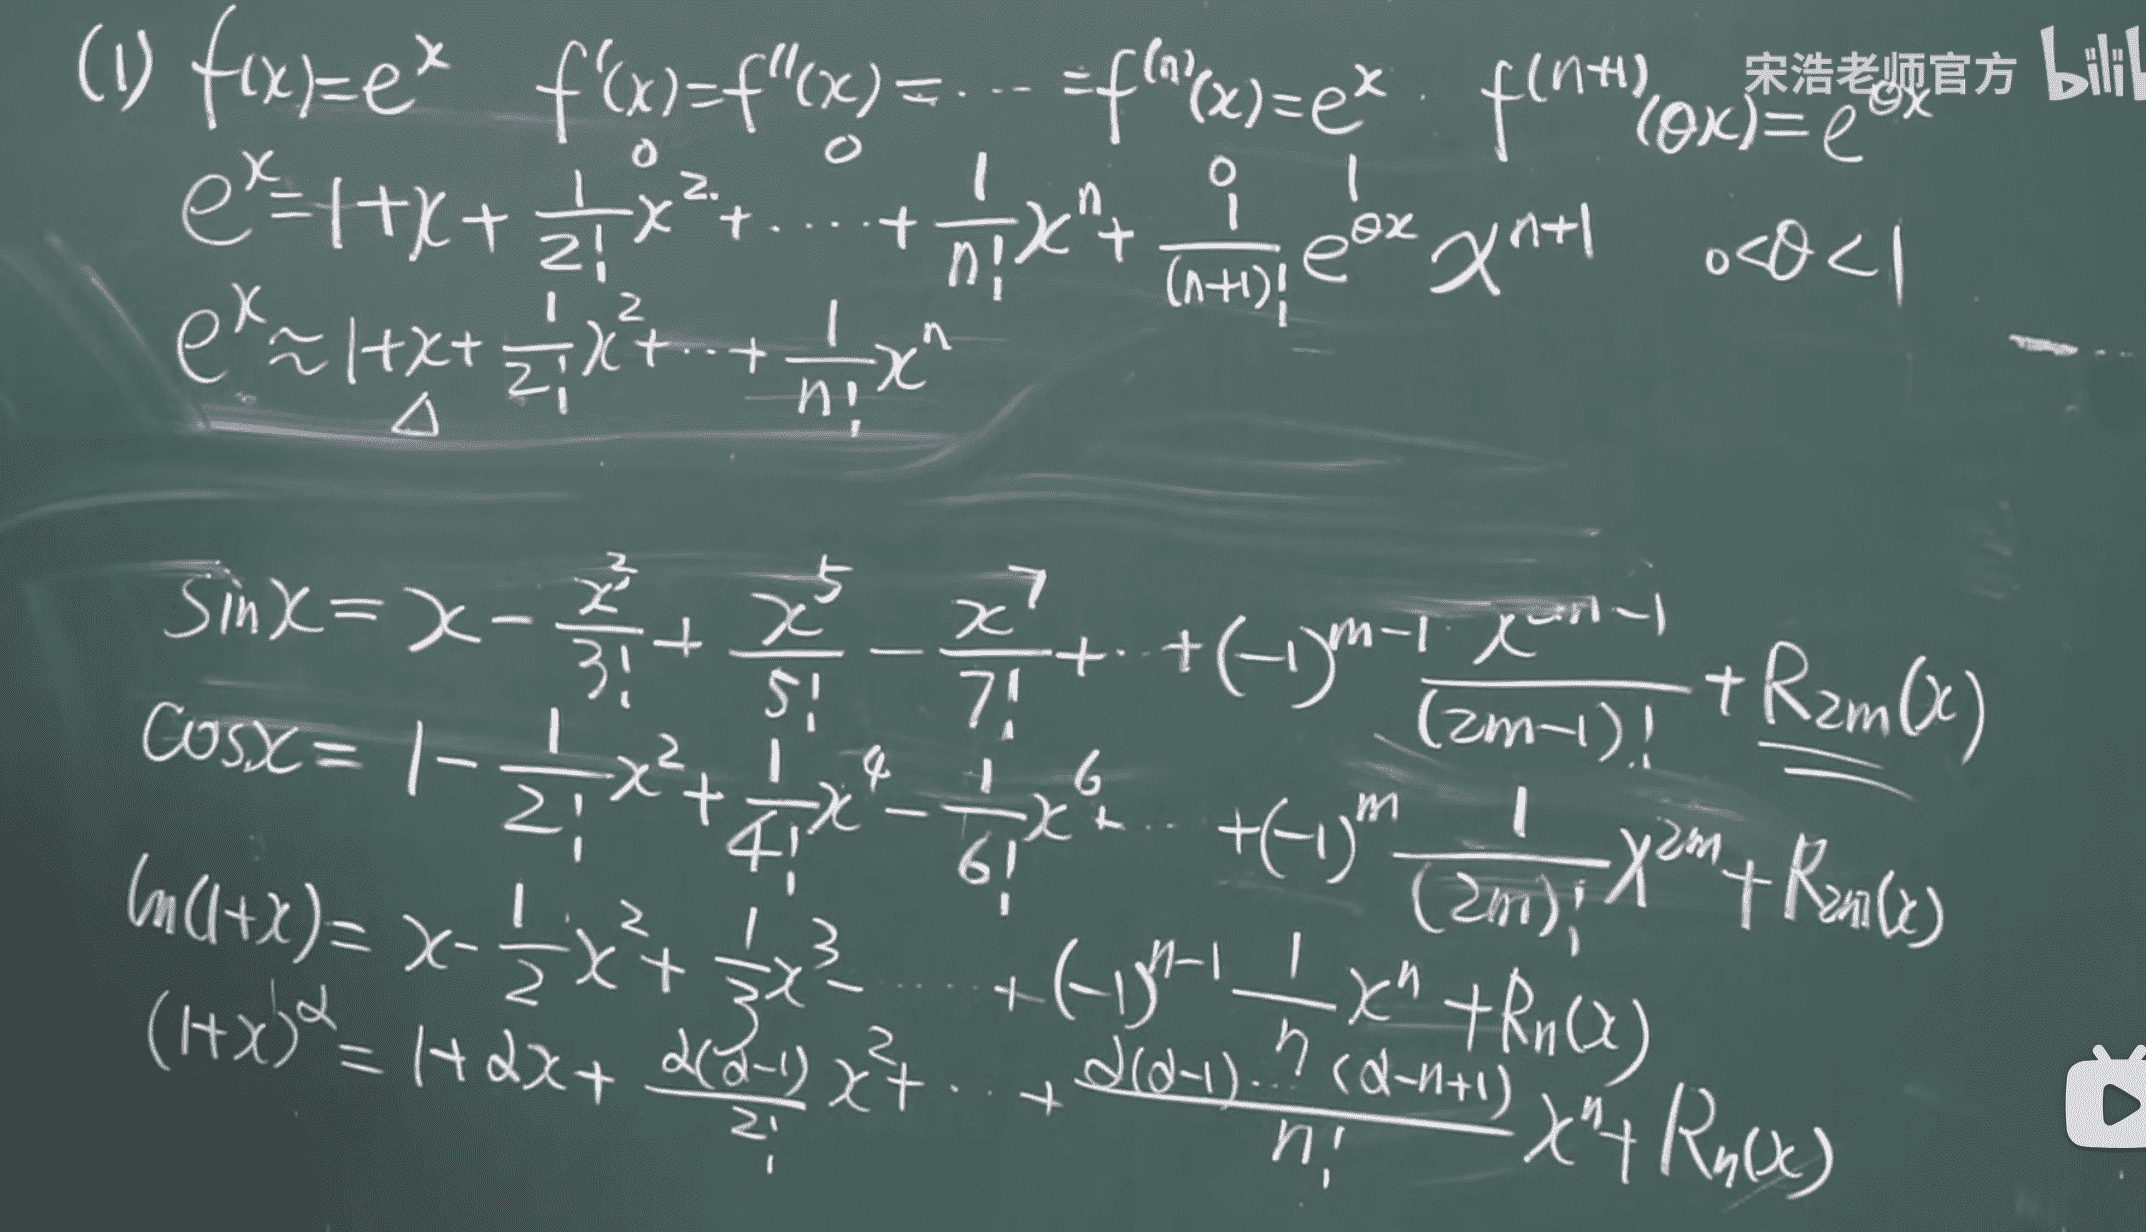 宋浩老师官方 bilib
(1) f(x)=e^x f'(x)=f''(x)=····=f^(n)(x)=e^x. f^(n+1)(θx)=e^θx
0 0 0 1
e^x=1+x+1/2! x^2+.····+1/n! x^n+1/(n+1)! e^θx x^n+1 0<θ<1
e^x≈1+x+1/2! x^2+··+1/n! x^n
△
sinx=x-x^2/3!+x^5/5!-x^7/7!+··+(-1)^m-1 x /(2m-1)!+R2m(x)
cosx=1-1/2! x^2+1/4! x^4-1/6! x^6+··· +(-1)^m 1/(2m)! x^2m+R2m(x)
ln(1+x)=x-1/2 x^2+1/3 x^3-······+(-1)^n-1 1/n x^n+Rn(x)
(1+x)^α=1+αx+α(α-1)/2! x^2+···+α(α-1)···(α-n+1)/n! x^n+Rn(x)